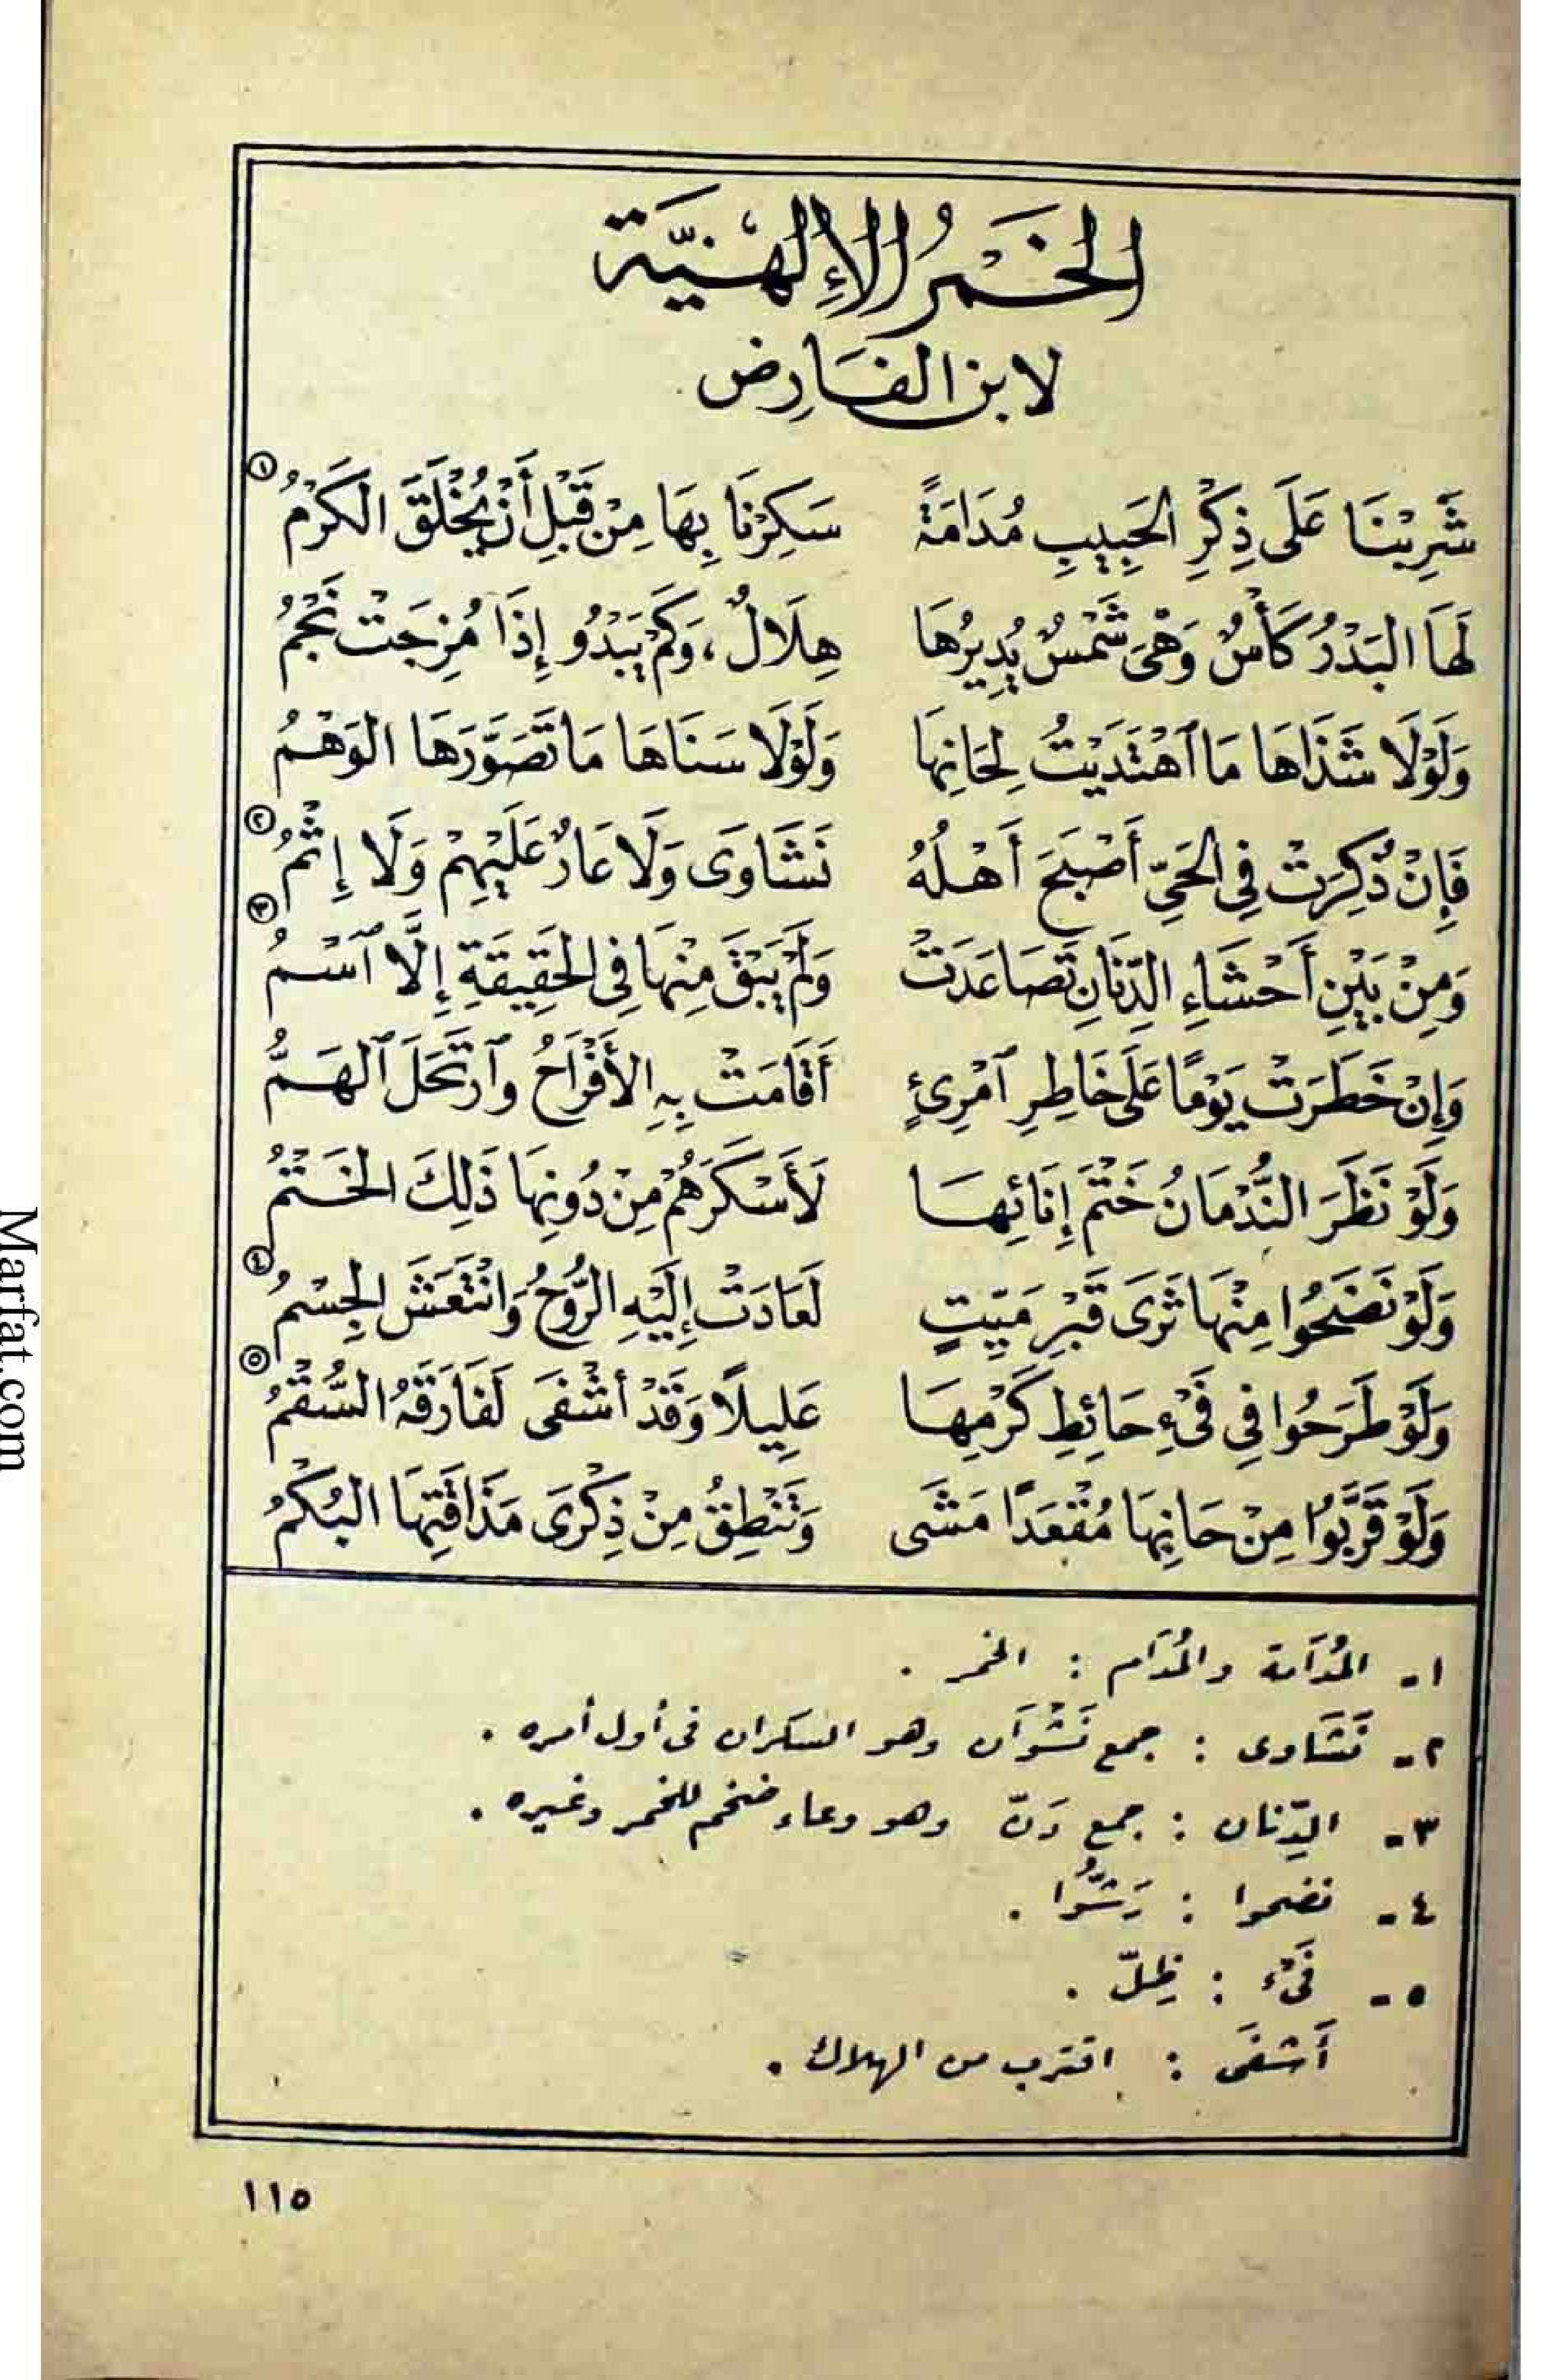 الخَمْرُ الإِلٰهِيَّة
لابن الفَارِض
شَرِبْنَا عَلَى ذِكْرِ الحَبِيبِ مُدَامَةً سَكِرْنَا بِهَا مِنْ قَبْلِ أَنْ يُخْلَقَ الكَرْمُ ①
لَهَا البَدْرُ كَأْسٌ وَهْىَ شَمْسٌ يُدِيرُهَا هِلَالٌ ، وَكَمْ يَبْدُو إِذَا مُزِجَتْ نَجْمُ
وَلَوْلَا شَذَاهَا مَا ٱهْتَدَيْتُ لِحَانِهَا وَلَوْلَا سَنَاهَا مَا تَصَوَّرَهَا الوَهْمُ
فَإِنْ ذُكِرَتْ فِي الحَيِّ أَصْبَحَ أَهْلُهُ نَشَاوَى وَلَا عَارٌ عَلَيْهِمْ وَلَا إِثْمُ ②
وَمِنْ بَيْنِ أَحْشَاءِ الدِّنَانِ تَصَاعَدَتْ وَلَمْ يَبْقَ مِنْهَا فِي الحَقِيقَةِ إِلَّا ٱسْمُ ③
وَإِنْ خَطَرَتْ يَوْمًا عَلَى خَاطِرِ ٱمْرِئٍ أَقَامَتْ بِهِ الأَفْرَاحُ وَٱرْتَحَلَ ٱلهَمُّ
وَلَوْ نَظَرَ النُّدْمَانُ خَتْمَ إِنَائِهَا لَأَسْكَرَهُمْ مِنْ دُونِهَا ذَلِكَ الخَتْمُ
وَلَوْ نَضَحُوا مِنْهَا ثَرَى قَبْرِ مَيِّتٍ لَعَادَتْ إِلَيْهِ الرُّوحُ وَانْتَعَشَ الجِسْمُ ④
وَلَوْ طَرَحُوا فِي فَيْءِ حَائِطِ كَرْمِهَا عَلِيلًا وَقَدْ أَشْفَى لَفَارَقَهُ السُّقْمُ ⑤
وَلَوْ قَرَّبُوا مِنْ حَانِهَا مُقْعَدًا مَشَى وَتَنْطِقُ مِنْ ذِكْرَى مَذَاقَتِهَا البُكْمُ
١- المُدَامة والمُدَام : الخمر .
٢- نَشَاوى : جمع نَشْوَان وهو السكران فى أول أمره .
٣- الدِّنان : جمع دَنّ وهو وعاء ضخم للخمر وغيره .
٤- نضحوا : رَشُّوا .
٥- فَىْء : ظِلّ .
أَشفَى : اقترب من الهلاك .
١١٥
Marfat.com